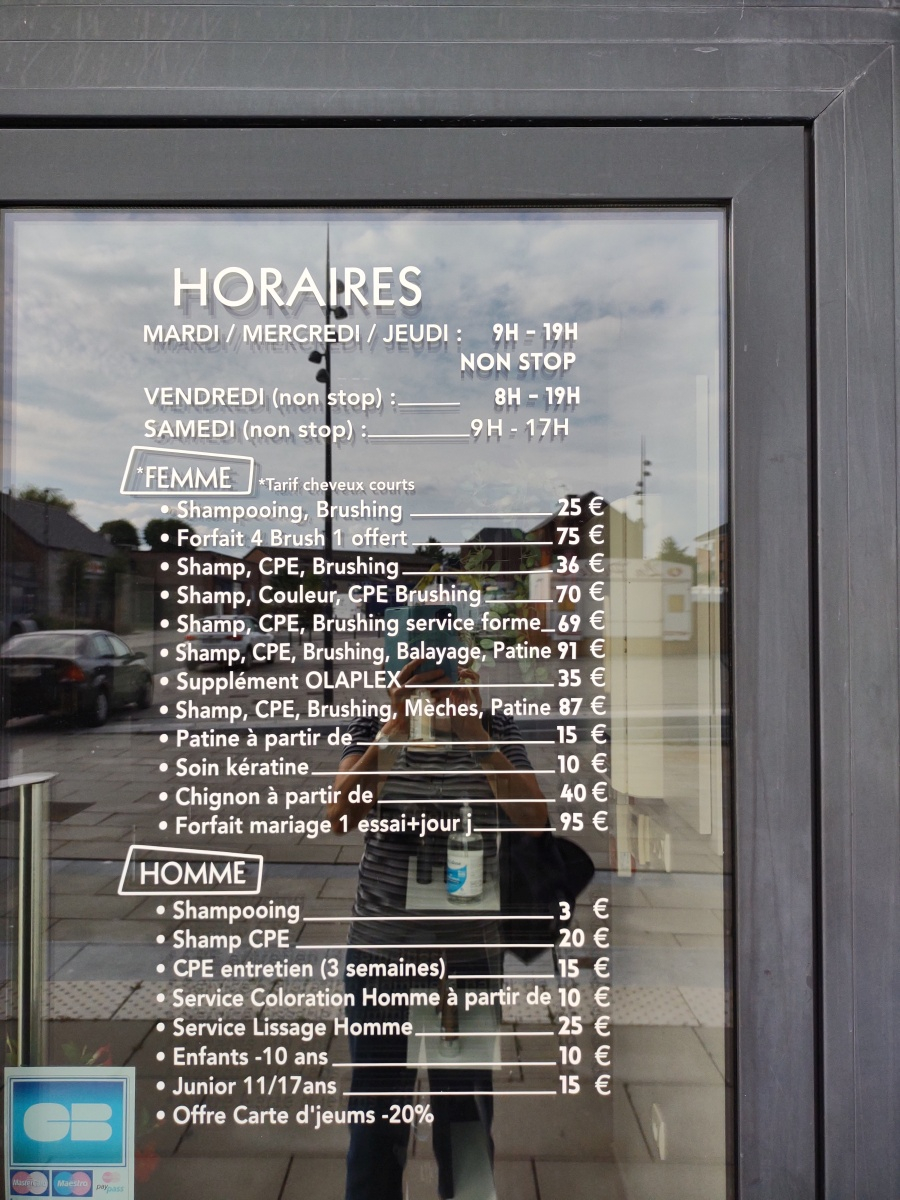 HORAIRES
MARDI / MERCREDI / JEUDI : 9H - 19H
NON STOP
VENDREDI (non stop) : 8H - 19H
SAMEDI (non stop) : 9H - 17H
*FEMME *Tarif cheveux courts
• Shampooing, Brushing 25 €
• Forfait 4 Brush 1 offert 75 €
• Shamp, CPE, Brushing 36 €
• Shamp, Couleur, CPE Brushing 70 €
• Shamp, CPE, Brushing service forme 69 €
• Shamp, CPE, Brushing, Balayage, Patine 91 €
• Supplément OLAPLEX 35 €
• Shamp, CPE, Brushing, Mèches, Patine 87 €
• Patine à partir de 15 €
• Soin kératine 10 €
• Chignon à partir de 40 €
• Forfait mariage 1 essai+jour j 95 €
HOMME
• Shampooing 3 €
• Shamp CPE 20 €
• CPE entretien (3 semaines) 15 €
• Service Coloration Homme à partir de 10 €
• Service Lissage Homme 25 €
• Enfants -10 ans 10 €
• Junior 11/17ans 15 €
• Offre Carte d'jeums -20%
CB
MasterCard Maestro paypass